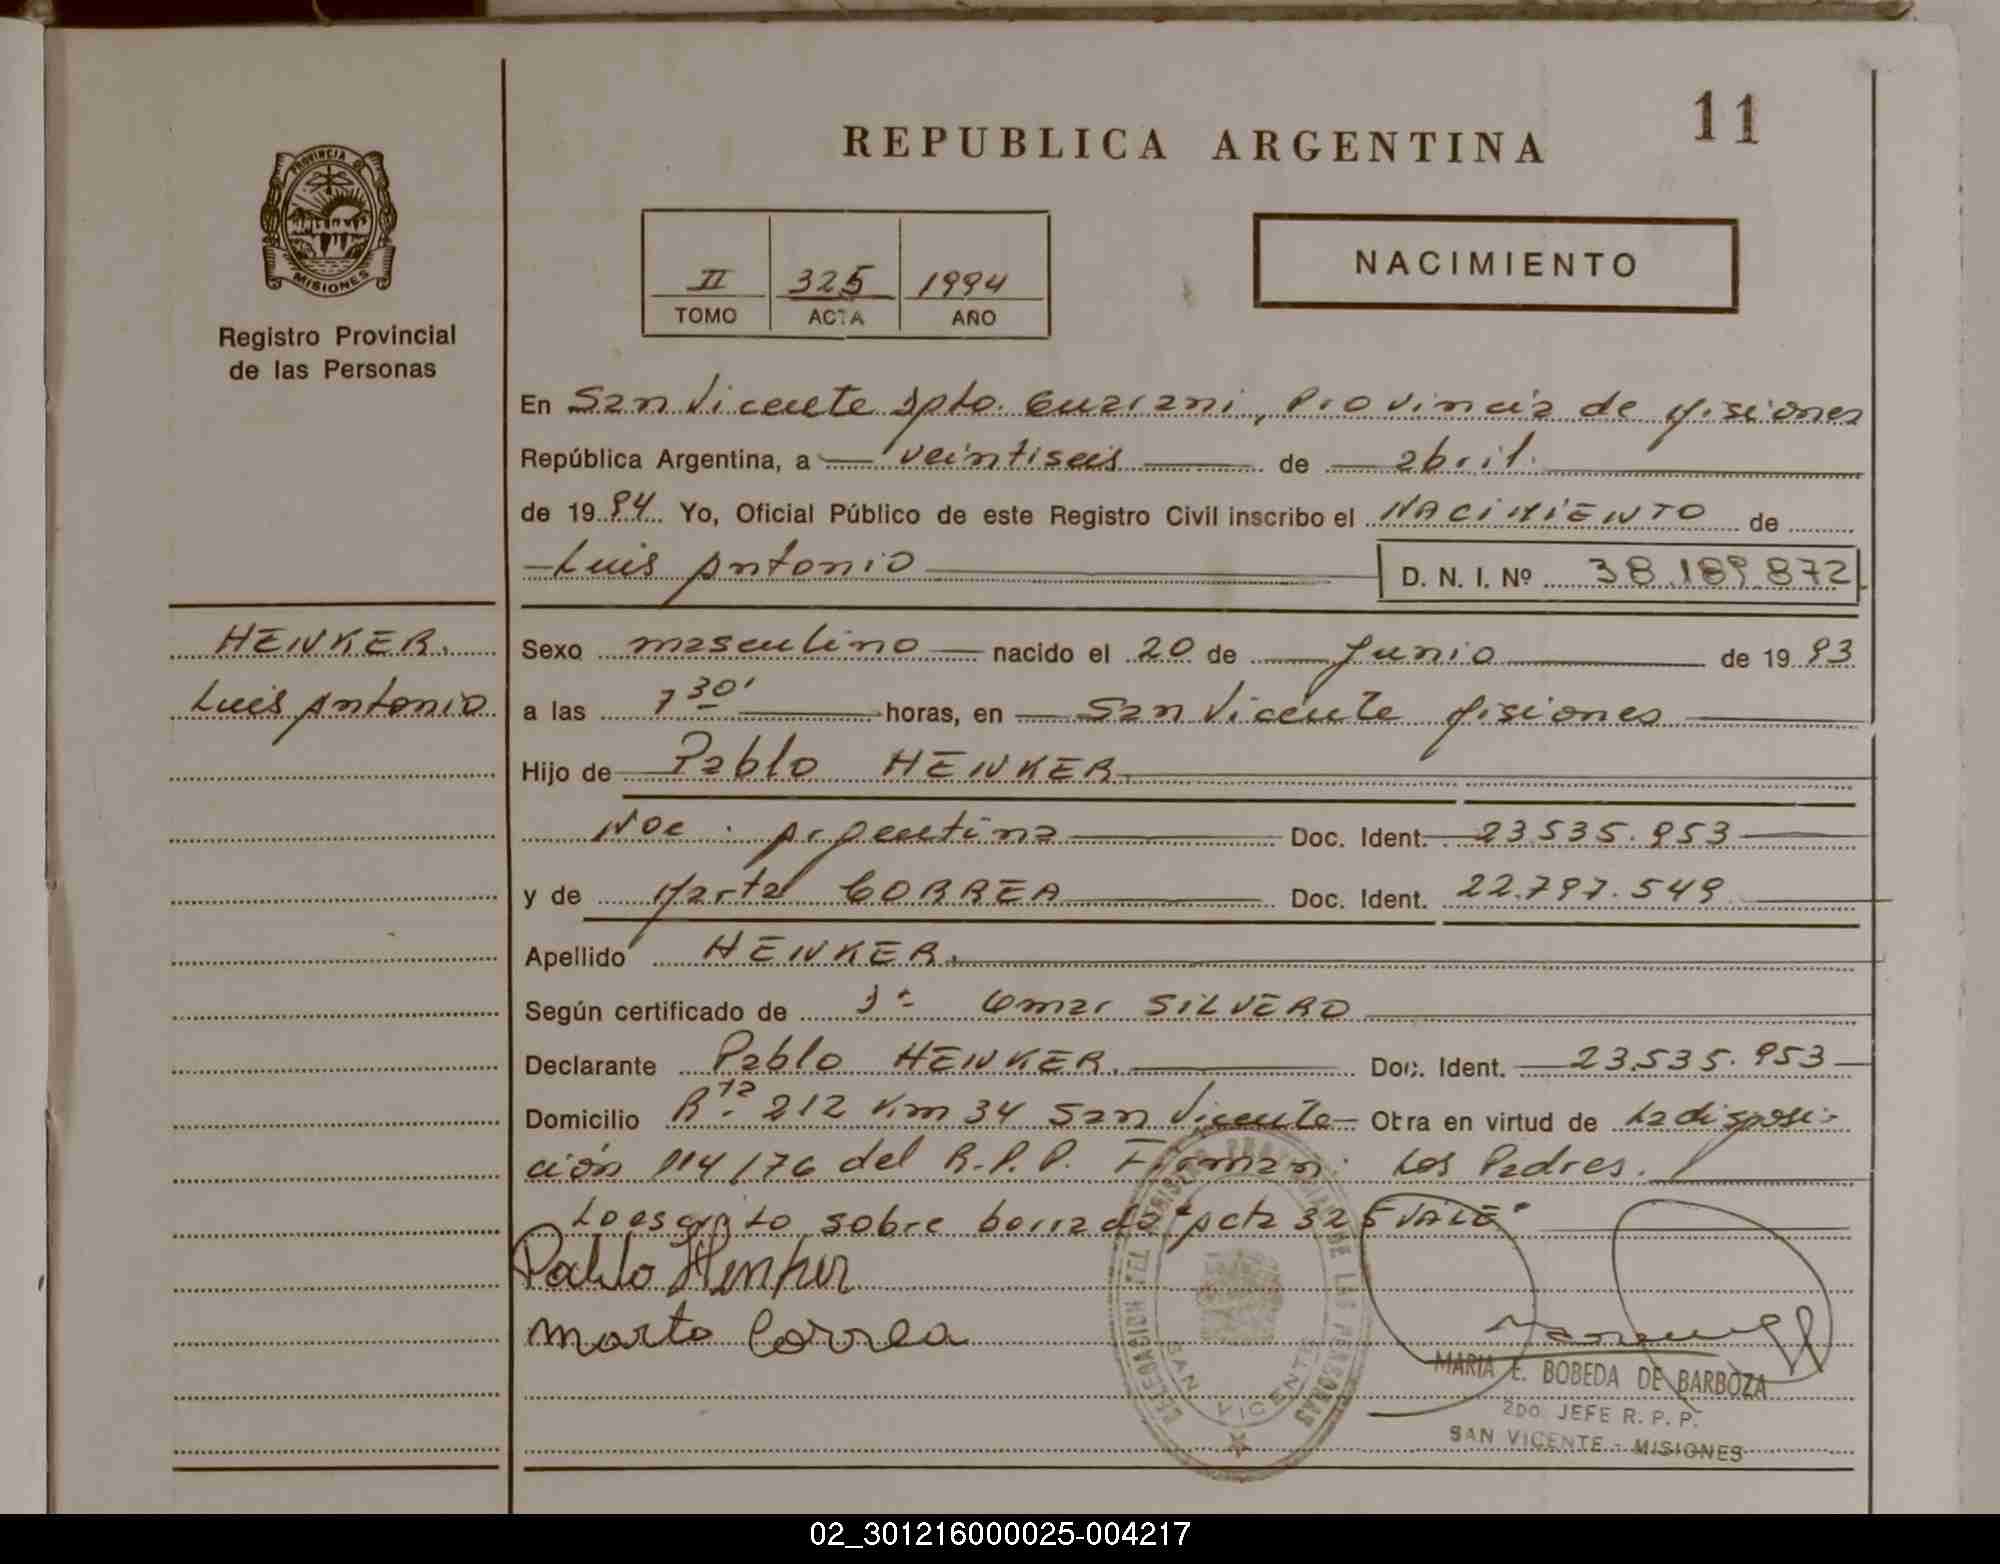 11
REPUBLICA ARGENTINA
PROVINCIA DE
MISIONES
Registro Provincial
de las Personas
II 325 1994
TOMO ACTA AÑO
NACIMIENTO
En San Vicente Dpto. Guarani, Provincia de Misiones
República Argentina, a veintiseis de abril.
de 1994 Yo, Oficial Público de este Registro Civil inscribo el NACIMIENTO de
Luis Antonio D. N. I. Nº 38.189.872
HENKER.
Luis Antonio
Sexo masculino nacido el 20 de Junio de 1993
a las 7 30' horas, en San Vicente Misiones
Hijo de Pablo HENKER
Nac. Argentina Doc. Ident. 23.535.953
y de Marta CORREA Doc. Ident. 22.797.549
Apellido HENKER.
Según certificado de Dr Omar SILVERO
Declarante Pablo HENKER. Doc. Ident. 23.535.953
Domicilio R. 212 Km 34 San Vicente Otra en virtud de La disposi-
ción 114/76 del R.P.P. Firman: Los Padres.
Lo escrito sobre borrado "Acta 325 VALE"
Pablo Henker
Marta Correa
DELEGACION DEL REGISTRO PROVINCIAL DE LAS PERSONAS
SAN VICENTE
MARIA E. BOBEDA DE BARBOZA
2DO. JEFE R. P. P.
SAN VICENTE - MISIONES
02_301216000025-004217